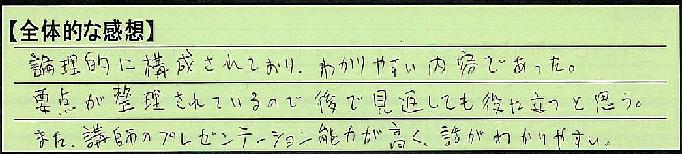 【全体的な感想】
論理的に構成されており、わかりやすい内容であった。
要点が整理されているので後で見返しても役に立つと思う。
また、講師のプレゼンテーション能力が高く、話がわかりやすい。